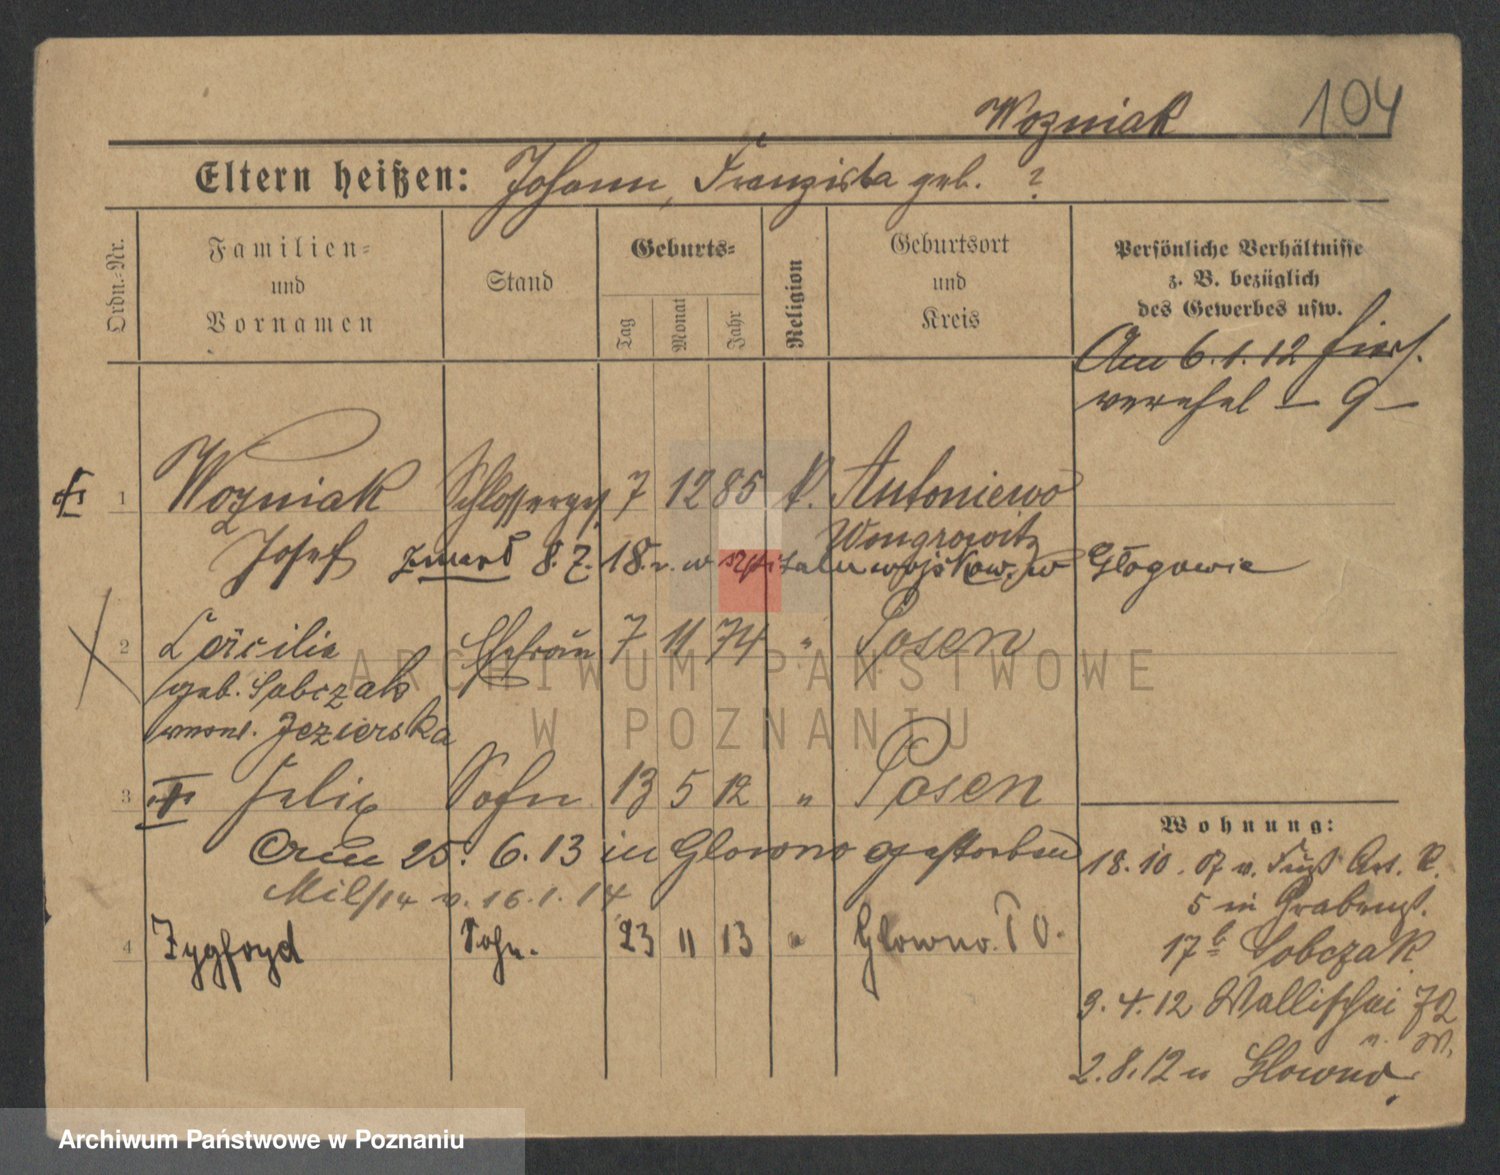 Wozniak 104
Eltern heißen: Johann, Franziska geb. ?
Ordn.-Nr.
Familien-
und
Vornamen
Stand
Geburts-
Tag
Monat
Jahr
Religion
Geburtsort
und
Kreis
Persönliche Verhältnisse
z. B. bezüglich
des Gewerbes usw.
Am 6.1.12 hiers.
verehel — 9 —
1 Wozniak Schlosserges. 7 12 85 k. Antoniewo
Wongrowitz
Josef zmarł 8.7.18. w szpitalu wojskow. w Głogowie
2 Cäcilie Ehefrau 7 11 74 " Posen
geb. Sobczak
verw. Jezierska
3 Felix Sohn 13 5 12 " Posen
Am 25. 6. 13 in Glowno gestorben
Mil/14 v. 16.1.14
4 Zygfryd Sohn. 23 11 13 " Glowno. P O.
Wohnung:
18.10.07 v. Fuß Art. R.
5 in
17 b Sobczak
3.4.12 Wallischei 72
2.8.12 n Glowno.
ARCHIWUM PAŃSTWOWE
W POZNANIU
Archiwum Państwowe w Poznaniu